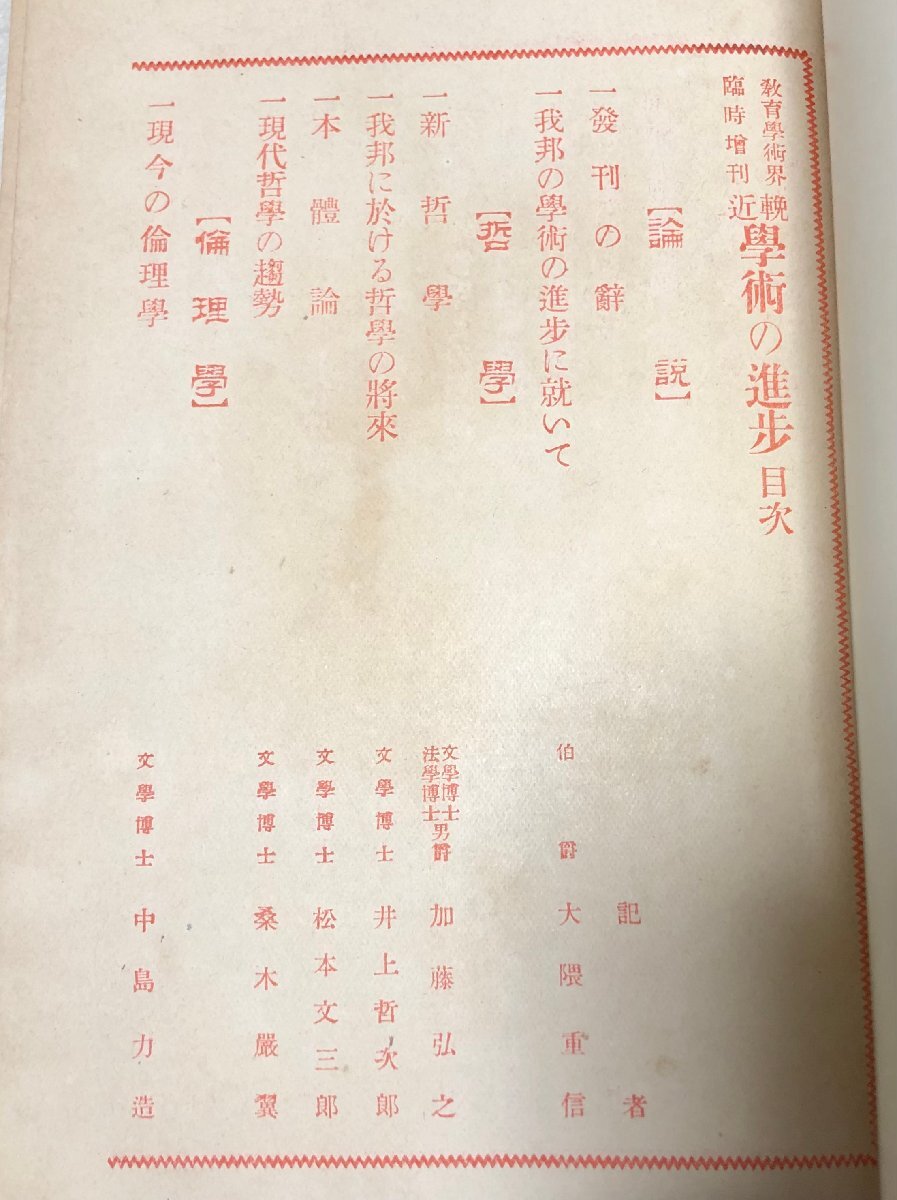 教育學術界
臨時增刊
輓近
學術の進步 目次
【論說】
一發刊の辭 記者
一我邦の學術の進步に就いて 伯爵 大隈重信
【哲學】
一新哲學 文學博士 法學博士 男爵 加藤弘之
一我邦に於ける哲學の將來 文學博士 井上哲次郎
一本體論 文學博士 松本文三郎
一現代哲學の趨勢 文學博士 桑木嚴翼
【倫理學】
一現今の倫理學 文學博士 中島力造